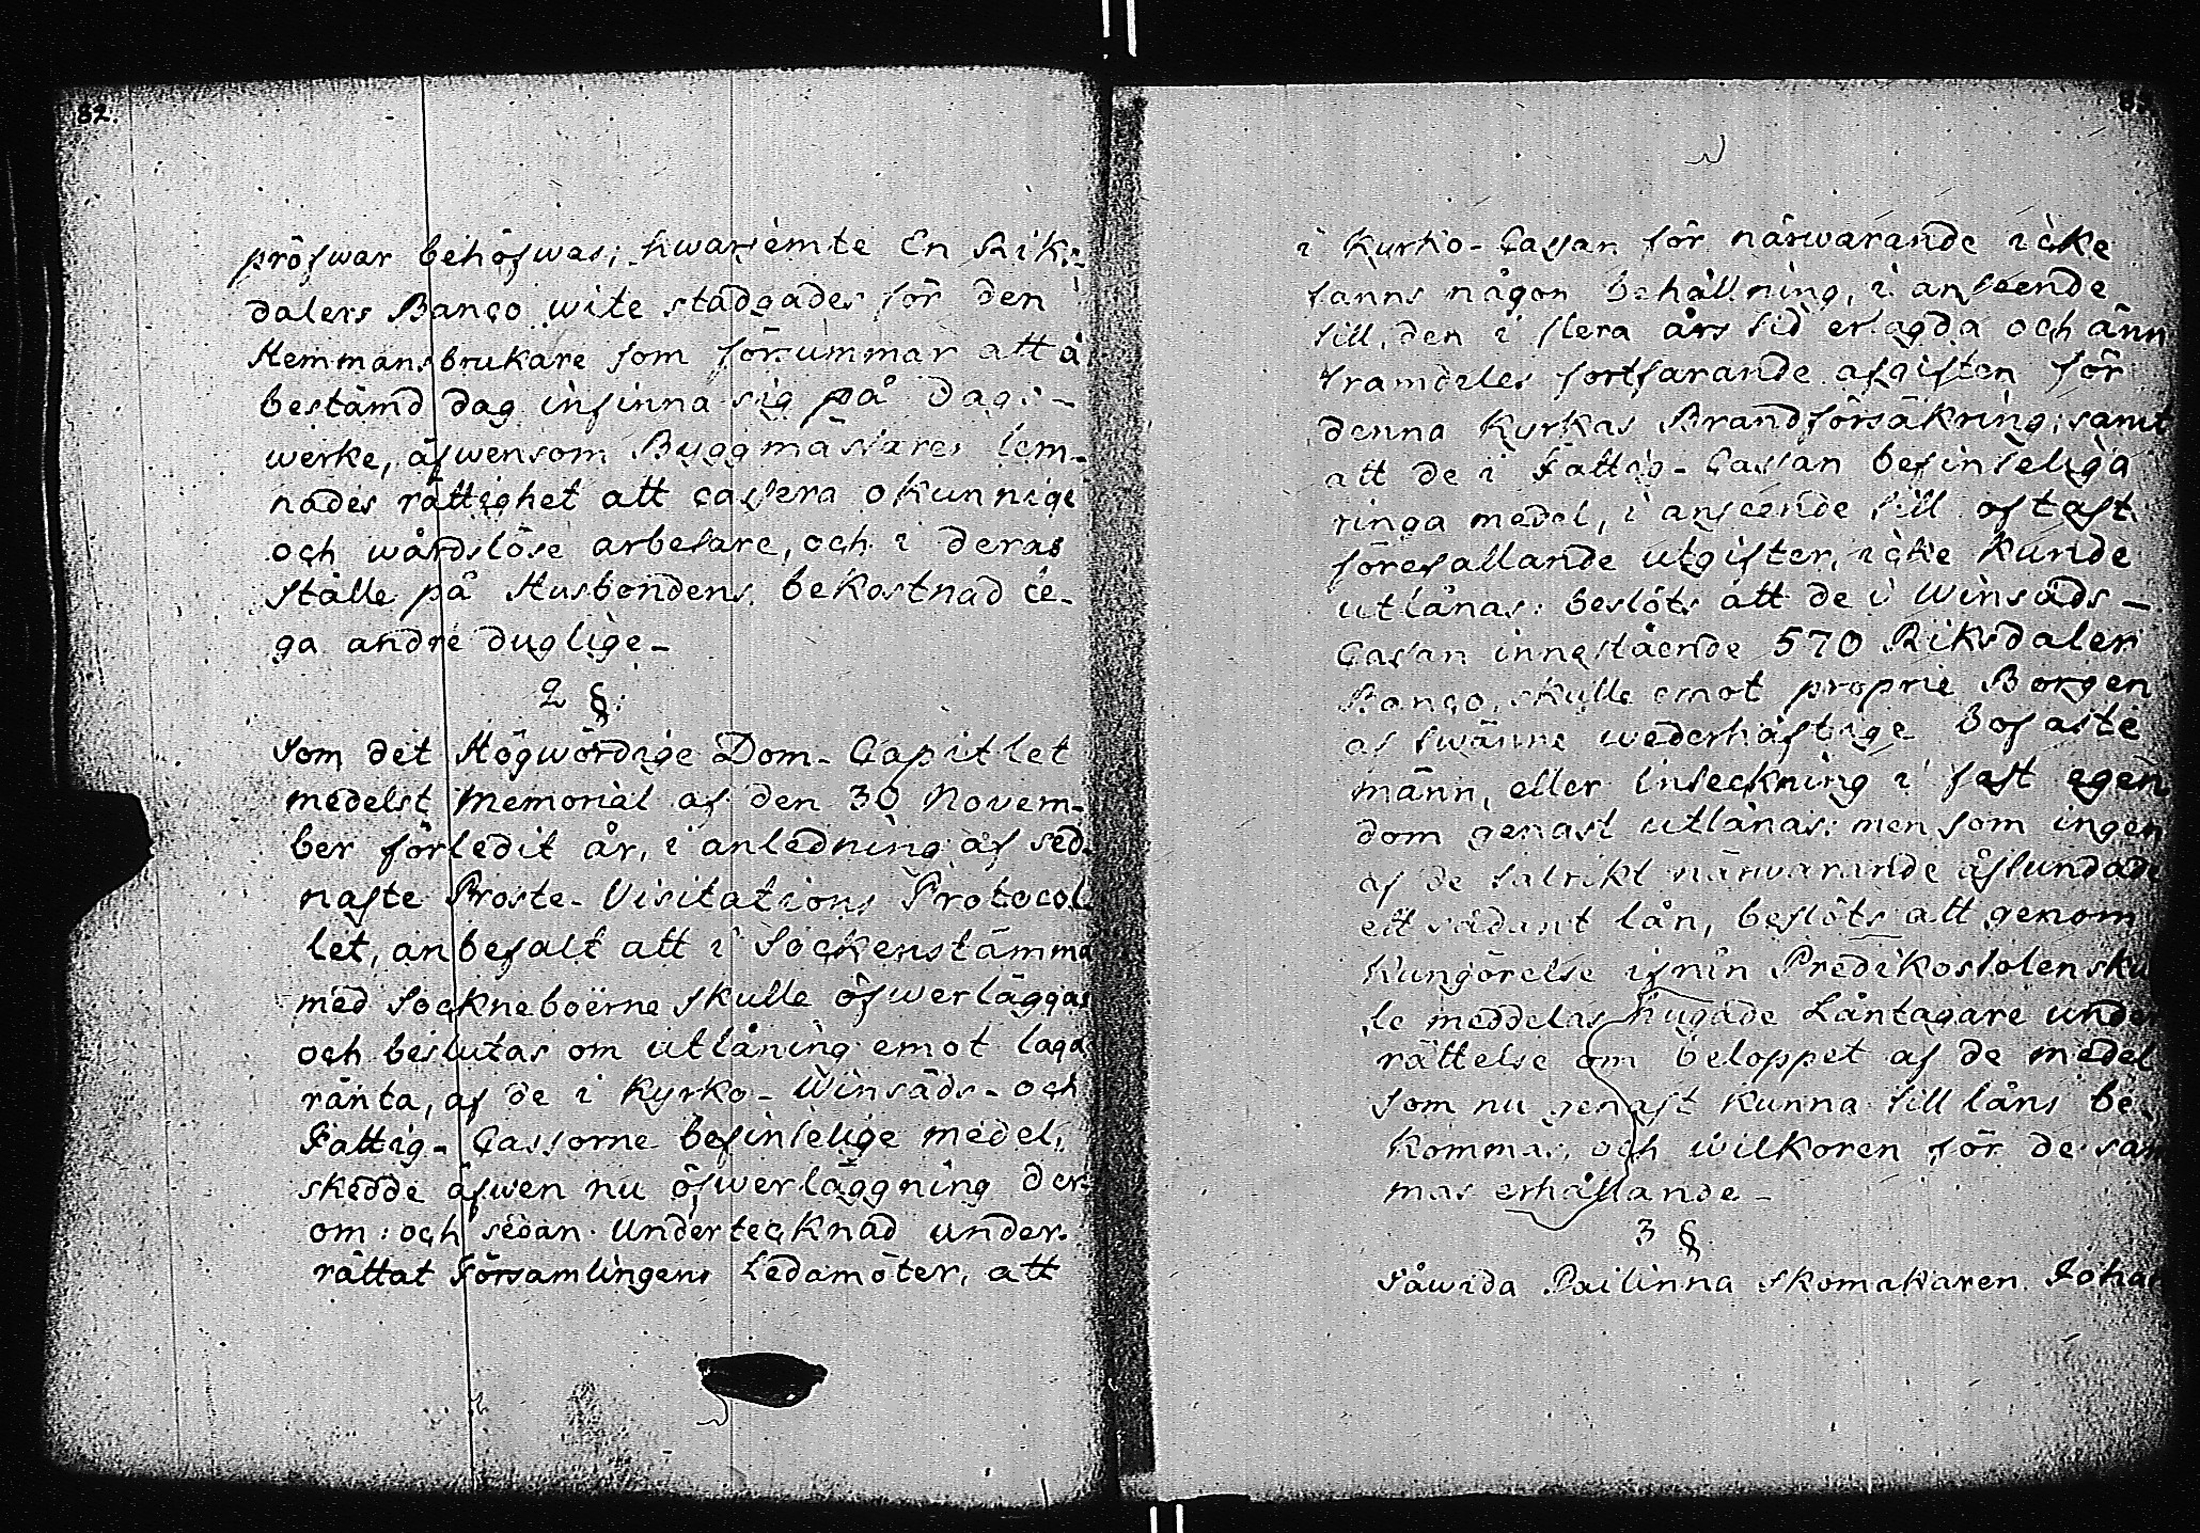 82.
pröfwar behöfwas; hwarjemte En Riks-
dalers Banco wite stadgades för den
Hemmansbrukare som försummar att å
bestämd dag infinna sig på Dags-
werke, äfwensom Byggmästares lem-
nades rättighet att cassera okunnige
och wårdslöse arbetare, och i deras
ställe på Husbondens bekostnad le-
ga andre duglige-
2 §.
Som det Högwördige Dom-Capitlet
medelst Memorial af den 30 Novem-
ber förledit år, i anledning af sed-
naste Proste-Visitations Protocol-
let, anbefalt att i Sockenstämma
med Sockneboerne skulle öfwerläggas
och beslutas om utlåning emot laga
ränta, af de i Kyrko- Winsäds- och
Fattig-Cassorne befintelige medel,
skedde äfwen nu öfwerläggning der-
om: och sedan Undertecknad under-
rättat Församlingens Ledamöter, att
i Kyrko-Cassan för närwarande icke
fanns någon behållning, i anseende
till den i flera års tid erlagda och änn
framdeles fortfarande afgiften för
denna Kyrkas Brandförsäkring; samt
att de i Fattig-Cassan befinteliga
ringa medel, i anseende till oftast
förefallande utgifter, icke kunde
utlånas: beslöts att de i Winsäds-
Cassan innestående 570 Riksdaler
Banco, skulle emot proprie Borgen
af twänne wederhäftige bofaste
männ, eller inteckning i fast egen
dom genast utlånas: men som ingen
af de talrikt närwarande åstundade
ett sådant lån, beslöts att genom
Kungörelse ifrån Predikostolen sku
le meddelas hugade Låntagare unde
rättelse om beloppet af de medel
som nu genast kunna till låns be-
kommas, och wilkoren för de sam
mas erhållande-
3 §
Såwida Pailinna Skomakaren Johan